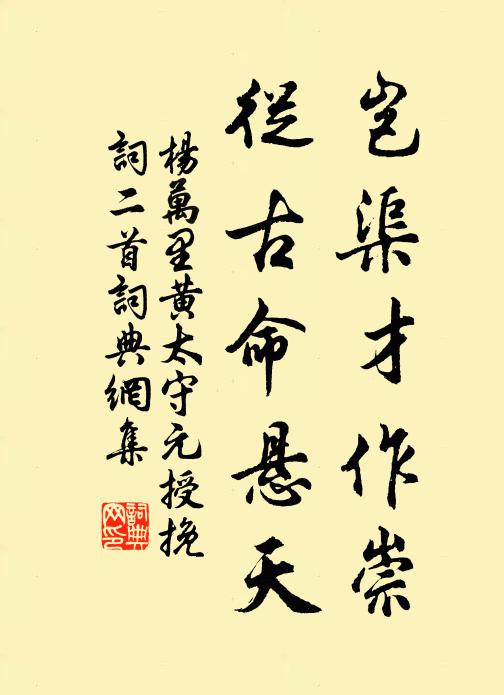 岂渠才作崇
從古命悬天
楊萬里黄太守元授挽
詞二首詞典網集
詞典
网印